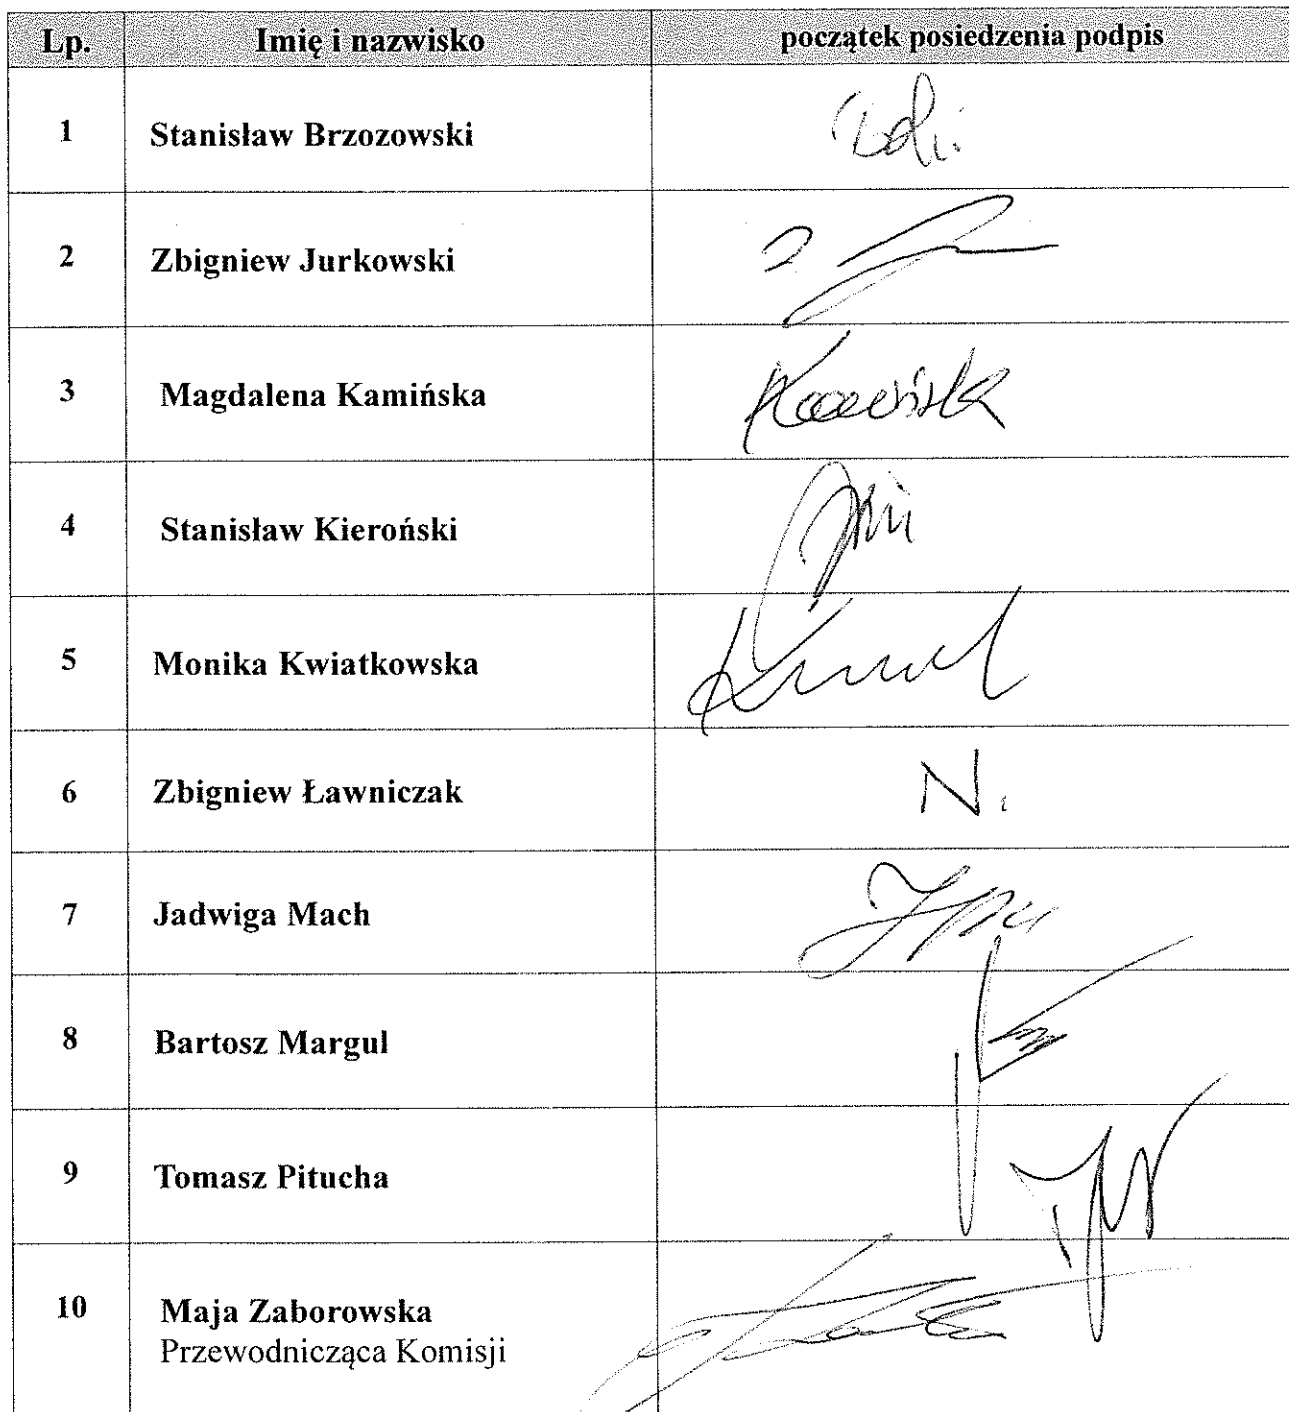 Lp. Imię i nazwisko początek posiedzenia podpis
1 Stanisław Brzozowski
2 Zbigniew Jurkowski
3 Magdalena Kamińska Kamińska
4 Stanisław Kieroński
5 Monika Kwiatkowska
6 Zbigniew Ławniczak N.
7 Jadwiga Mach
8 Bartosz Margul
9 Tomasz Pitucha
10 Maja Zaborowska
Przewodnicząca Komisji